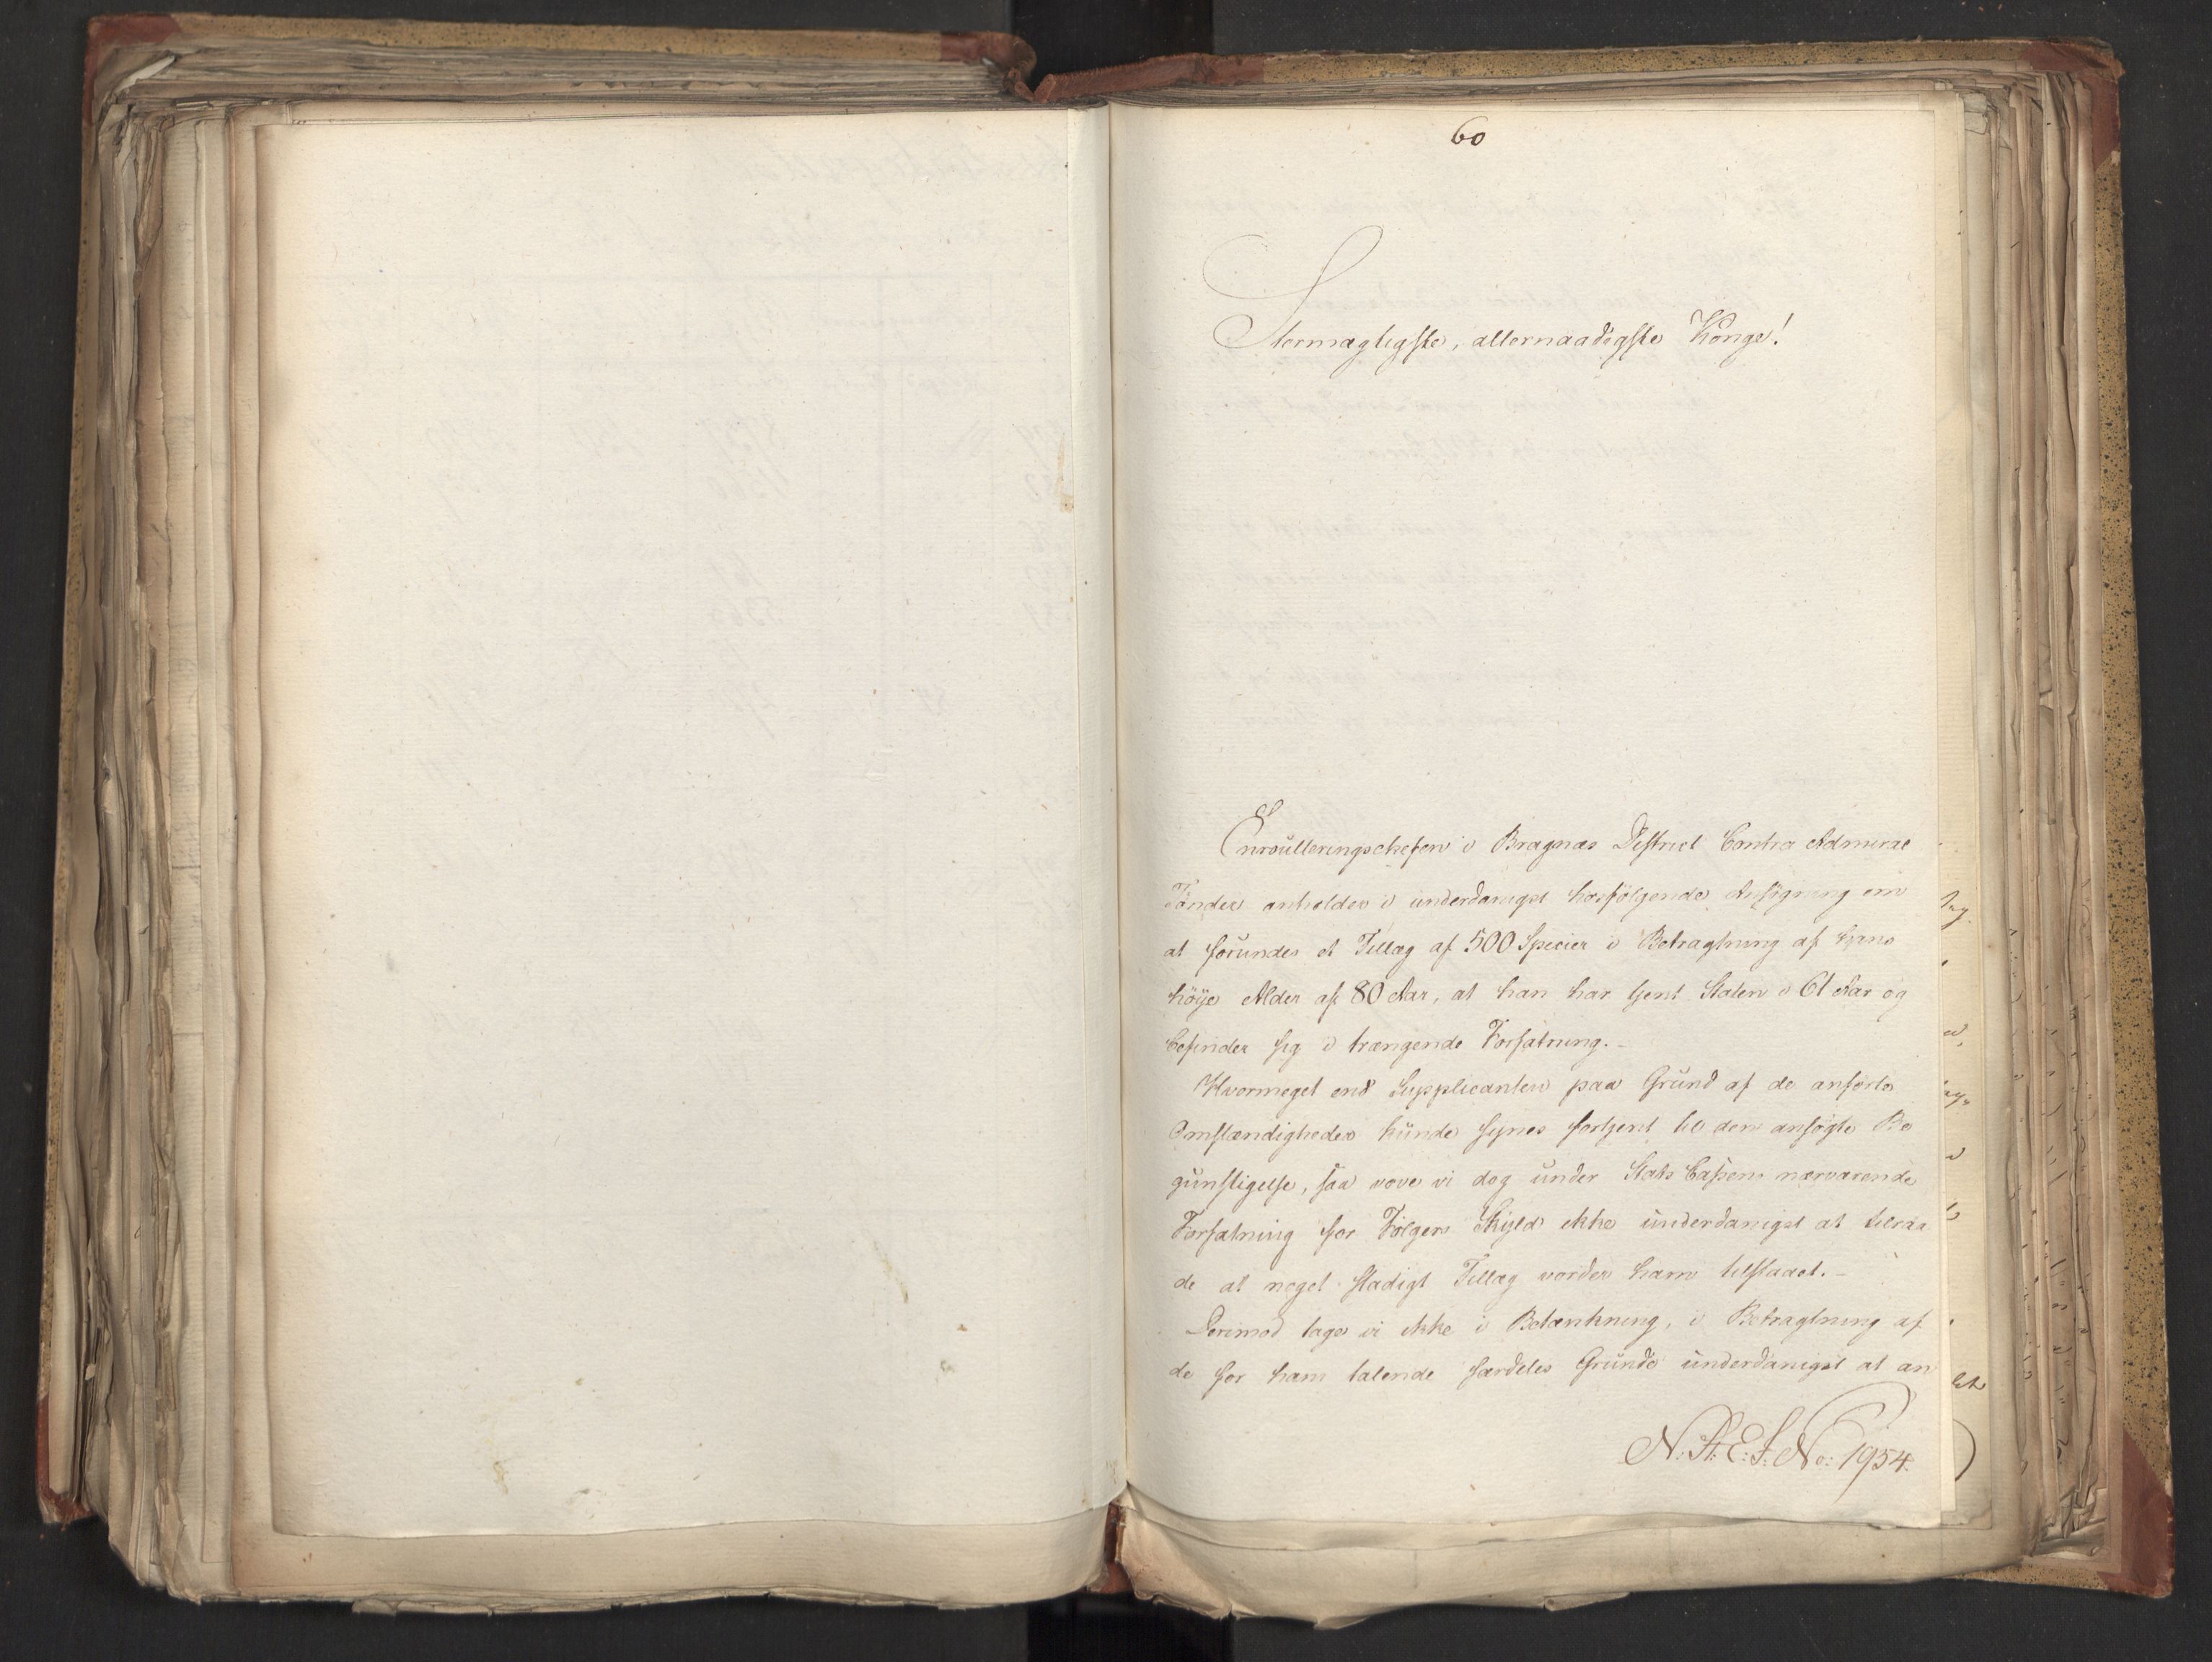 60
Stormægtigste, allernaadigste Konge!
Enroulleringschefen i Bragnæs District Contra Admiral
Tønder anholder i underdanigst hosfølgende Ansögning om
at forundes et Tillæg af 500 Species i Betragtning af hans
höÿe Alder af 80 Aar, at han har tjent Staten i 61 Aar og
befinder sig i trængende Forfatning.-
Hvormeget end Supplicanten paa Grund af de anførte
Omstændigheder kunde synes fortjent til den ansøgte Be
gunstigelse, saa vove vi dog under Stats Cassens nærværende
Forfatning for Følgers Skyld ikke underdanigst at tilraa
de at noget stadigt Tillæg vorder ham tilstaaet.-
Derimod tage vi ikke i Betænkning, i Betragtning af
de for ham talende særdeles Grunde underdanigst at an
N: St: E: S: No: 1954.